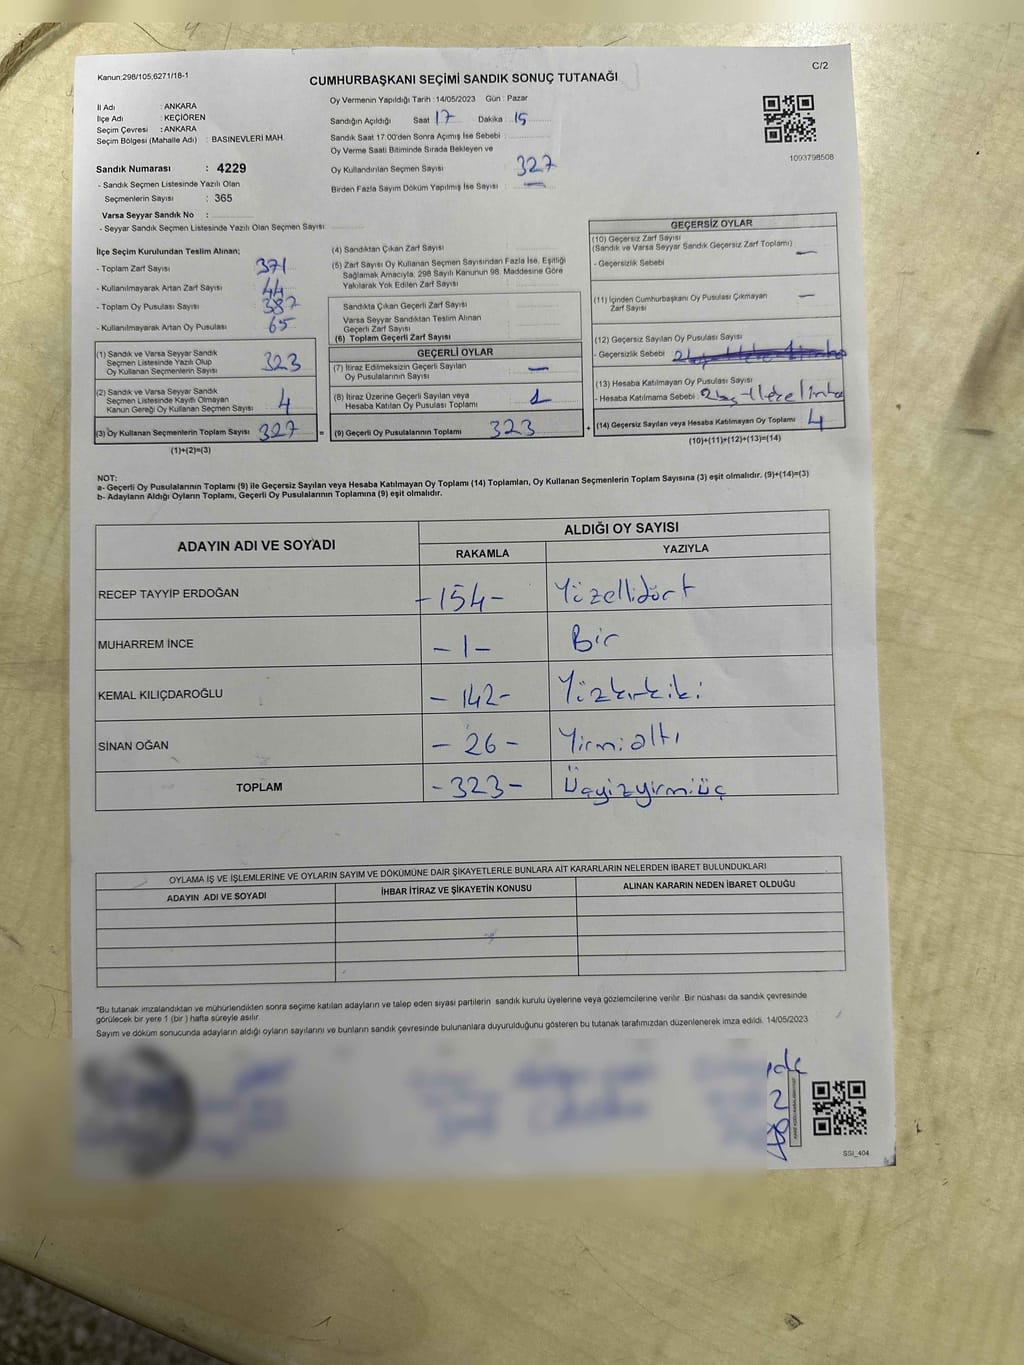 Kanun:298/105;6271/18-1
C/2
CUMHURBAŞKANI SEÇİMİ SANDIK SONUÇ TUTANAĞI
İl Adı : ANKARA
İlçe Adı : KEÇİÖREN
Seçim Çevresi : ANKARA
Seçim Bölgesi (Mahalle Adı) : BASINEVLERİ MAH.
Sandık Numarası : 4229
- Sandık Seçmen Listesinde Yazılı Olan
Seçmenlerin Sayısı : 365
Varsa Seyyar Sandık No :
- Seyyar Sandık Seçmen Listesinde Yazılı Olan Seçmen Sayısı:
Oy Vermenin Yapıldığı Tarih :14/05/2023 Gün : Pazar
Sandığın Açıldığı Saat 17 Dakika 15
Sandık Saat 17:00'den Sonra Açımış İse Sebebi :
Oy Verme Saati Bitiminde Sırada Bekleyen ve
Oy Kullandırılan Seçmen Sayısı 327
Birden Fazla Sayım Döküm Yapılmış İse Sayısı : —
1093798508
İlçe Seçim Kurulundan Teslim Alınan;
- Toplam Zarf Sayısı 371
- Kullanılmayarak Artan Zarf Sayısı 44
- Toplam Oy Pusulası Sayısı 387
- Kullanılmayarak Artan Oy Pusulası 65
(1) Sandık ve Varsa Seyyar Sandık
Seçmen Listesinde Yazılı Olup
Oy Kullanan Seçmenlerin Sayısı 323
(2) Sandık ve Varsa Seyyar Sandık
Seçmen Listesinde Kayıtlı Olmayan
Kanun Gereği Oy Kullanan Seçmen Sayısı 4
(3) Oy Kullanan Seçmenlerin Toplam Sayısı 327 =
(1)+(2)=(3)
(4) Sandıktan Çıkan Zarf Sayısı
(5) Zarf Sayısı Oy Kullanan Seçmen Sayısından Fazla İse, Eşitliği
Sağlamak Amacıyla, 298 Sayılı Kanunun 98. Maddesine Göre
Yakılarak Yok Edilen Zarf Sayısı
Sandıkta Çıkan Geçerli Zarf Sayısı
Varsa Seyyar Sandıktan Teslim Alınan
Geçerli Zarf Sayısı
(6) Toplam Geçerli Zarf Sayısı
GEÇERLİ OYLAR
(7) İtiraz Edilmeksizin Geçerli Sayılan
Oy Pusulalarının Sayısı —
(8) İtiraz Üzerine Geçerli Sayılan veya
Hesaba Katılan Oy Pusulası Toplamı
(9) Geçerli Oy Pusulalarının Toplamı 323 +
GEÇERSİZ OYLAR
(10) Geçersiz Zarf Sayısı
(Sandık ve Varsa Seyyar Sandık Geçersiz Zarf Toplamı) —
- Geçersizlik Sebebi
(11) İçinden Cumhurbaşkanı Oy Pusulası Çıkmayan
Zarf Sayısı —
(12) Geçersiz Sayılan Oy Pusulası Sayısı
- Geçersizlik Sebebi
(13) Hesaba Katılmayan Oy Pusulası Sayısı
- Hesaba Katılmama Sebebi :
(14) Geçersiz Sayılan veya Hesaba Katılmayan Oy Toplamı 4
(10)+(11)+(12)+(13)=(14)
NOT:
a- Geçerli Oy Pusulalarının Toplamı (9) ile Geçersiz Sayılan veya Hesaba Katılmayan Oy Toplamı (14) Toplamları, Oy Kullanan Seçmenlerin Toplam Sayısına (3) eşit olmalıdır. (9)+(14)=(3)
b- Adayların Aldığı Oyların Toplamı, Geçerli Oy Pusulalarının Toplamına (9) eşit olmalıdır.
ADAYIN ADI VE SOYADI
ALDIĞI OY SAYISI
RAKAMLA YAZIYLA
RECEP TAYYİP ERDOĞAN -154- Yüzellidört
MUHARREM İNCE -1- Bir
KEMAL KILIÇDAROĞLU -142- Yüzkırkiki
SİNAN OĞAN -26- Yirmialtı
TOPLAM -323- Üçyüzyirmiüç
OYLAMA İŞ VE İŞLEMLERİNE VE OYLARIN SAYIM VE DÖKÜMÜNE DAİR ŞİKAYETLERLE BUNLARA AİT KARARLARIN NELERDEN İBARET BULUNDUKLARI
ADAYIN ADI VE SOYADI İHBAR İTİRAZ VE ŞİKAYETİN KONUSU ALINAN KARARIN NEDEN İBARET OLDUĞU
*Bu tutanak imzalandıktan ve mühürlendikten sonra seçime katılan adayların ve talep eden siyasi partilerin sandık kurulu üyelerine veya gözlemcilerine verilir .Bir nüshası da sandık çevresinde
görülecek bir yere 1 (bir ) hafta süreyle asılır.
Sayım ve döküm sonucunda adayların aldığı oyların sayılarını ve bunların sandık çevresinde bulunanlara duyurulduğunu gösteren bu tutanak tarafımızdan düzenlenerek imza edildi. 14/05/2023
SSI_404